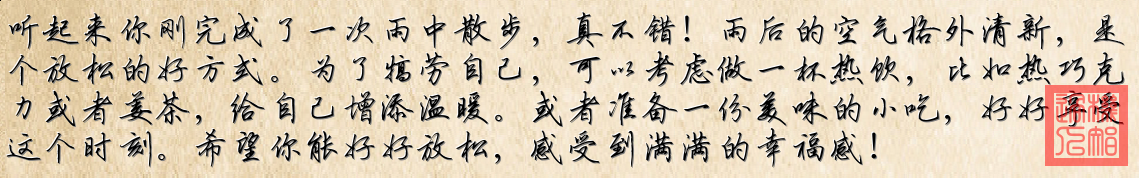 听起来你刚完成了一次雨中散步，真不错！雨后的空气格外清新，是
个放松的好方式。为了犒劳自己，可以考虑做一杯热饮，比如热巧克
力或者姜茶，给自己增添温暖。或者准备一份美味的小吃，好好享受
这个时刻。希望你能好好放松，感受到满满的幸福感！